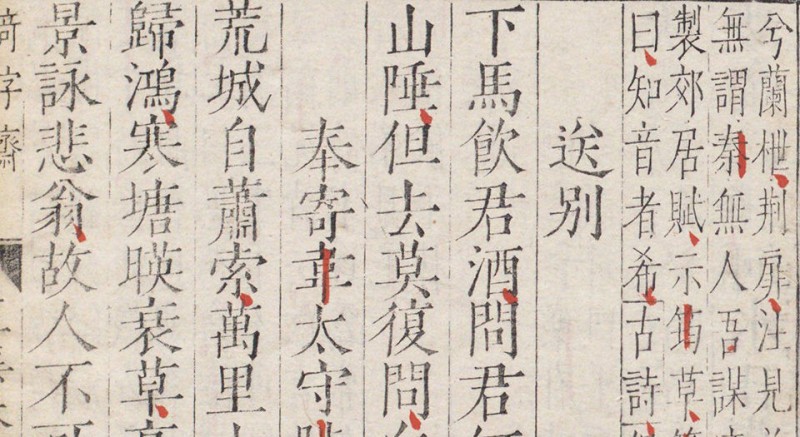 兮蘭枻荆扉注見
無謂秦無人吾謀
製郊居賦示筠草
曰知音者希古詩
送别
下馬飲君酒問君
山陲但去莫復問
奉寄韋太守
荒城自蕭索萬里
歸鴻寒塘暎衰草
景詠悲翁故人不
奇字齋